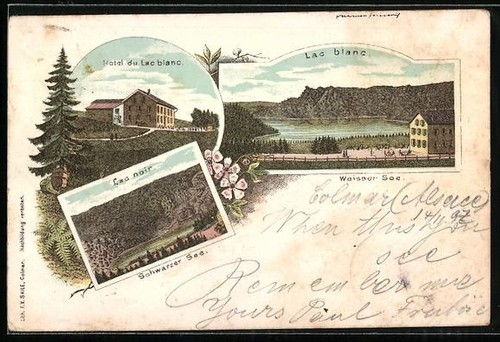 Hotel du Lac blanc.
Lac blanc.
Weisser See.
Lac noir.
Schwarzer See.
Lith. F.X. SAILE, Colmar. Nachbildung verboten.
Colmar (Alsace)
When this
see
Remember me
Yours Paul